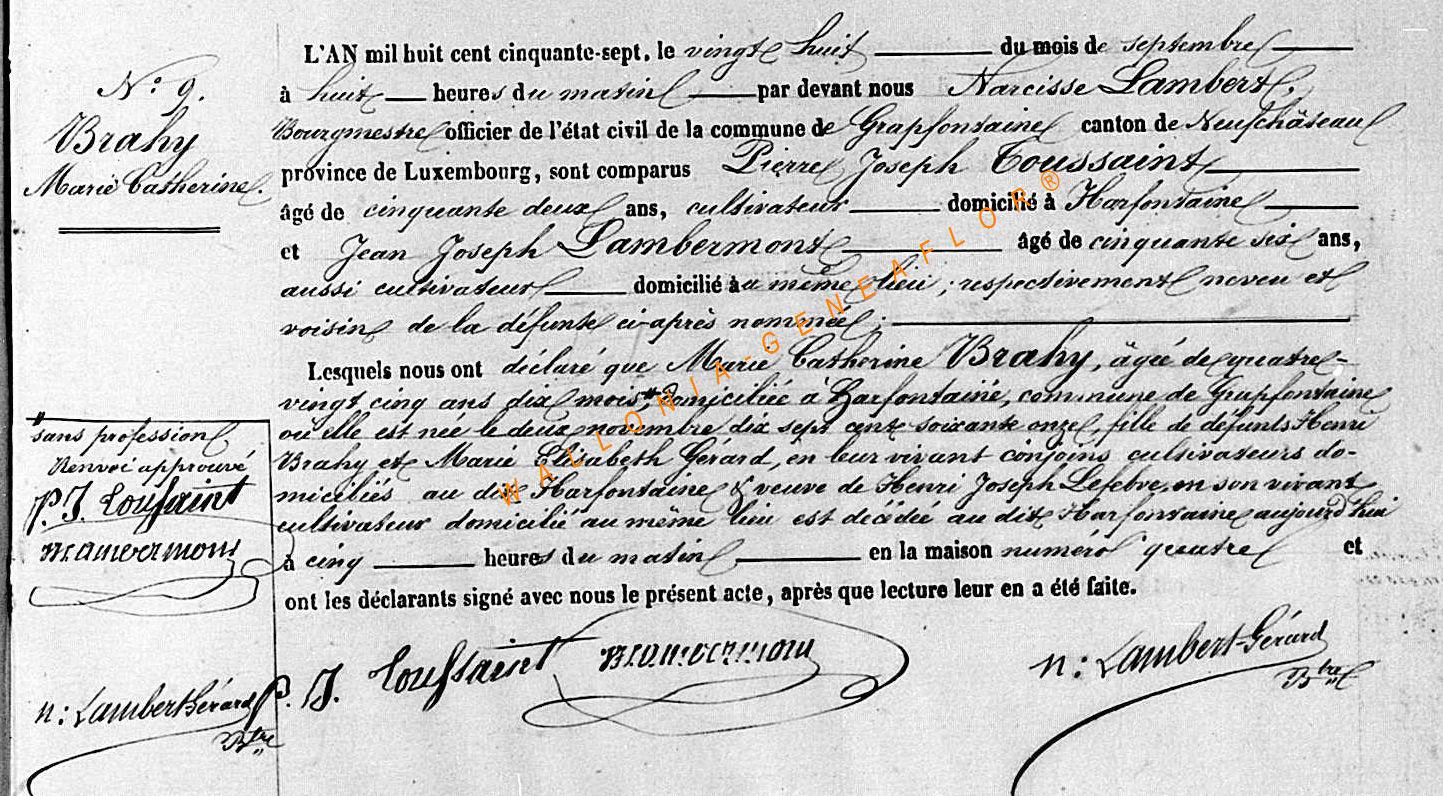 N° 9.
Brahy
Marie Catherine.
L'AN mil huit cent cinquante-sept, le vingt huit du mois de septembre
à huit heures du matin par devant nous Narcisse Lambert,
Bourgmestre officier de l'état civil de la commune de Grapfontaine canton de Neufchâteau
province de Luxembourg, sont comparus Pierre Joseph Toussaint
âgé de cinquante deux ans, cultivateur domicilié à Harfontaine
et Jean Joseph Lambermont âgé de cinquante six ans,
aussi cultivateur domicilié au même lieu ; respectivement neveu et
voisin de la défunte ci-après nommée ;
Lesquels nous ont déclaré que Marie Catherine Brahy, âgée de quatre-
vingt cinq ans dix mois, # domiciliée à Harfontaine, commune de Grapfontaine
où elle est née le deux novembre dix sept cent soixante onze, fille de défunts Henri
Brahy et Marie Elisabeth Gérard, en leur vivant conjoins cultivateurs do-
miciliés au dit Harfontaine & veuve de Henri Joseph Lefebvre, en son vivant
cultivateur domicilié au même lieu est décédée au dit Harfontaine aujourd'hui
à cinq heures du matin en la maison numéro quatre et
ont les déclarants signé avec nous le présent acte, après que lecture leur en a été faite.
# sans profession
Renvoi approuvé
P. J. Toussaint
n: Lambert-Gérard
Btre
P. J. Toussaint
n: Lambert-Gérard
Btre
WALLONIA-GENEAFLOR®